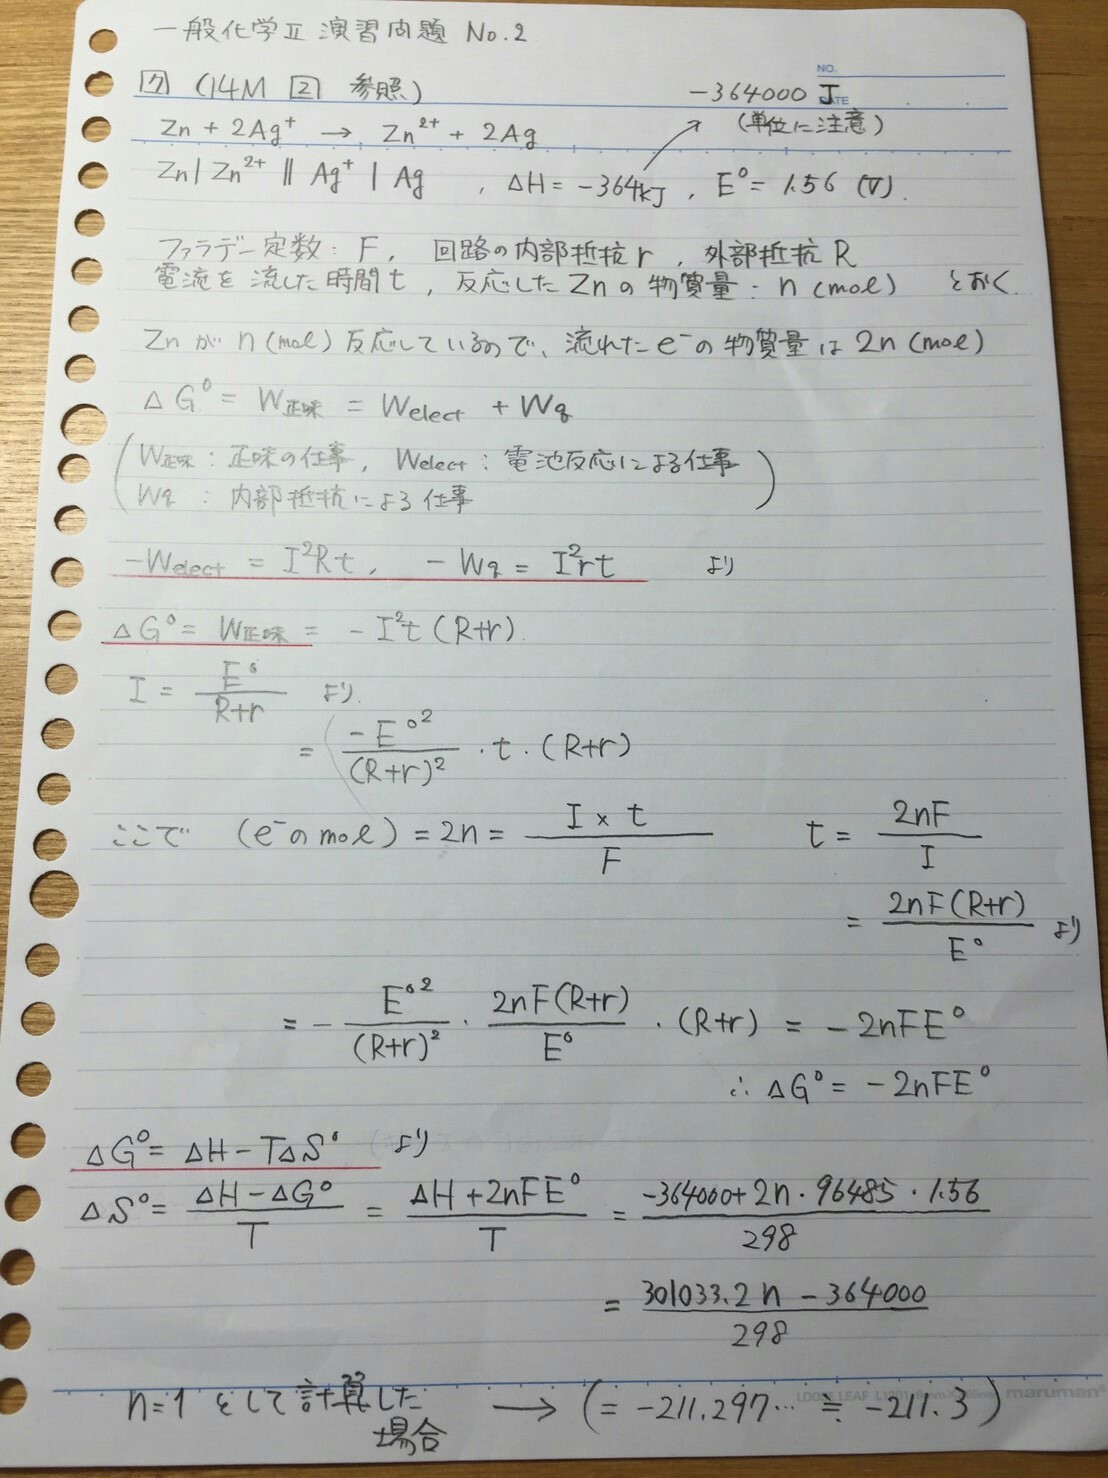 一般化学Ⅱ 演習問題 No.2
NO.
DATE
⑦ (14M ② 参照)
-364000 J
(単位に注意)
Zn + 2Ag⁺ → Zn²⁺ + 2Ag
Zn | Zn²⁺ || Ag⁺ | Ag , ΔH = -364kJ , E° = 1.56 (V).
ファラデー定数: F, 回路の内部抵抗 r, 外部抵抗 R
電流を流した時間 t, 反応した Zn の物質量: n (mol) とおく
Zn が n (mol) 反応しているので、流れた e⁻ の物質量は 2n (mol)
ΔG° = W正味 = Welect + Wq
(W正味: 正味の仕事, Welect: 電池反応による仕事
Wq: 内部抵抗による仕事)
-Welect = I²Rt, -Wq = I²rt より
ΔG° = W正味 = -I²t (R+r)
I = E° / (R+r) より
= -E°² / (R+r)² · t · (R+r)
ここで (e⁻の mol) = 2n = I × t / F t = 2nF / I
= 2nF(R+r) / E° より
= - E°² / (R+r)² · 2nF(R+r) / E° · (R+r) = -2nFE°
∴ ΔG° = -2nFE°
ΔG° = ΔH - TΔS° より
ΔS° = (ΔH - ΔG°) / T = (ΔH + 2nFE°) / T = (-364000 + 2n · 96485 · 1.56) / 298
= (301033.2 n - 364000) / 298
n=1 として計算した場合 → (= -211.297… ≒ -211.3)
LOOSE LEAF L1201 maruman